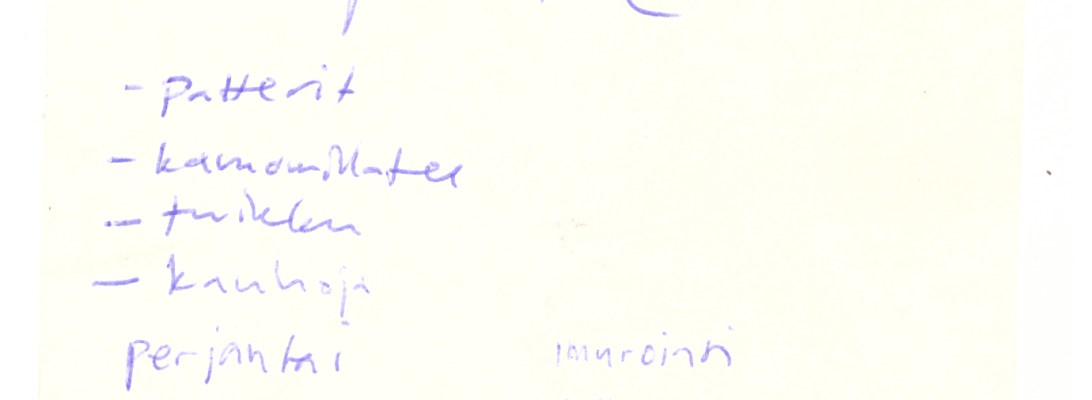 - patterit
- kamomillatee
- tuikku
- kauhoja
perjantai imurointi